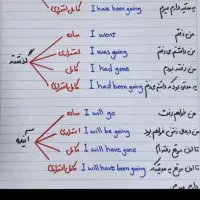 کامل استمراری I have been going به مدتیه دارم میرم
گذشته
ساده I went من رفتم
استمراری I was going من داشتم می رفتم
کامل I had gone من رفته بودم
کامل استمراری I had been going
آینده
ساده I will go من خواهم رفت
استمراری I will be going من در حال رفتن خواهم بود
کامل I will have gone تا اون موقع رفته ام
کامل استمراری I will have been going تا اون موقع